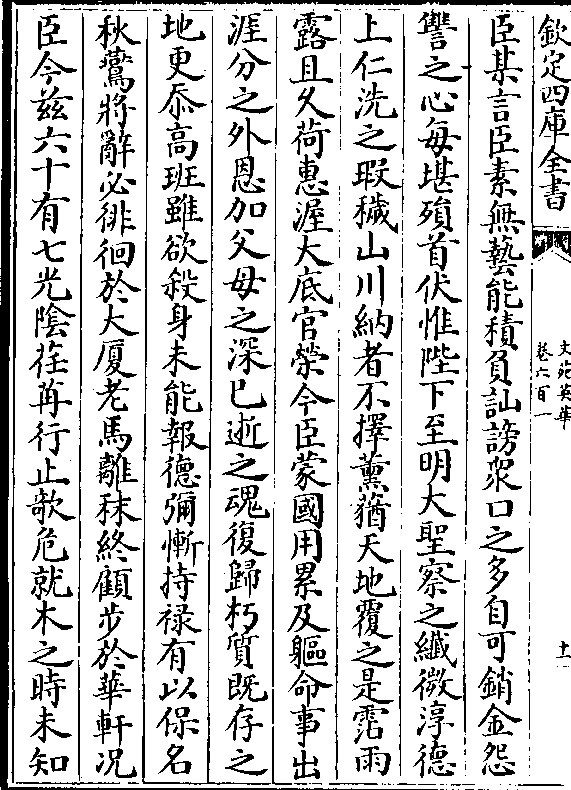 欽定四庫全書
文苑英華
卷六百一
十一
臣某言臣素無藝能積負訕謗衆口之多自可銷金怨
讐之心每堪殞首伏惟陛下至明大聖察之纖微淳德
上仁洗之瑕穢山川納者不擇薰蕕天地覆之是霑雨
露且久荷惠渥大底官榮今臣蒙國用累及軀命事出
涯分之外恩加父母之深已逝之魂復歸朽質既存之
地更忝高班雖欲殺身未能報德彌慚持禄有以保名
秋鷰將辭必徘徊於大厦老馬離秣終顧步於華軒况
臣今兹六十有七光陰荏苒行止欹危就木之時未知